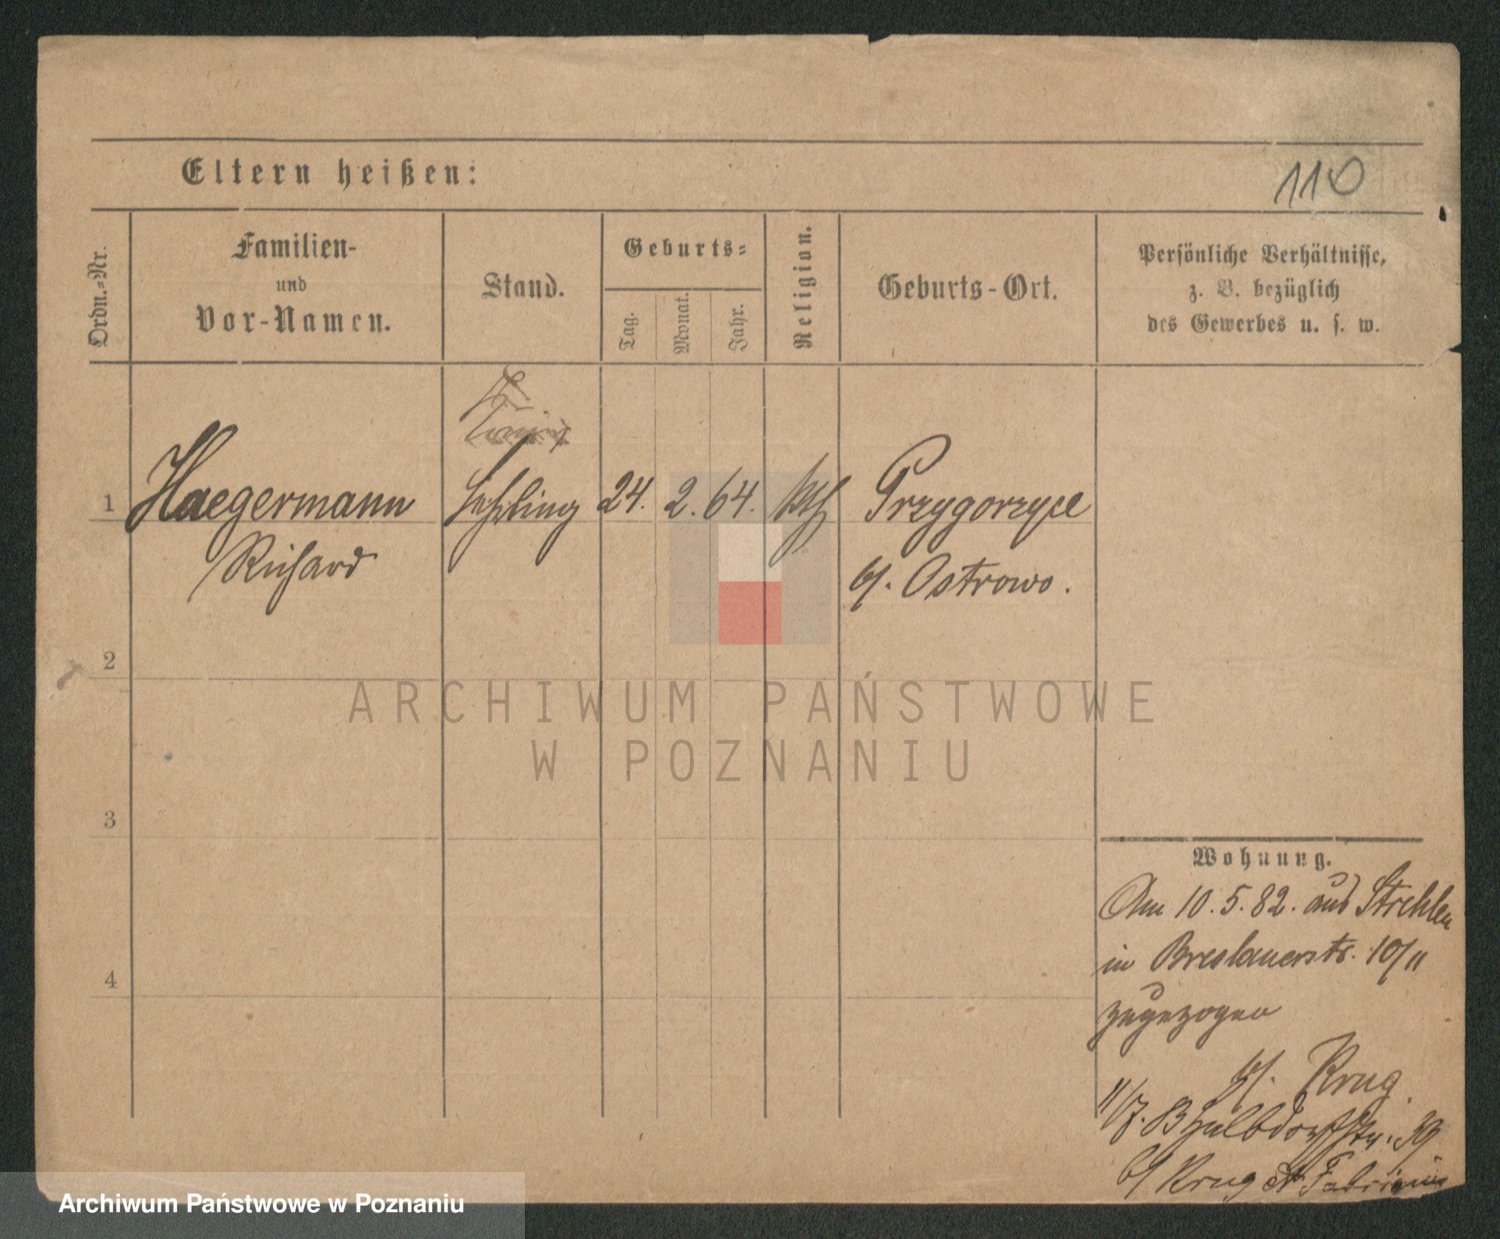 Eltern heißen:
110
Ordn.-Nr.
Familien-
und
Vor-Namen.
Stand.
Geburts-
Tag.
Monat.
Jahr.
Religion.
Geburts-Ort.
Persönliche Verhältnisse,
z. B. bezüglich
des Gewerbes u. s. w.
1 Haegermann Lehrling 24. 2. 64. kth Przygorzyce
Richard b/. Ostrowo.
2
3
4
ARCHIWUM PAŃSTWOWE
W POZNANIU
Wohnung.
Am 10. 5. 82. aus Strehlen
in Breslauerstr. 10/11
zugezogen
b/. Krug.
11/7. 83 Halbdorfstr. 39
b/ Krug & Fabricius
Archiwum Państwowe w Poznaniu